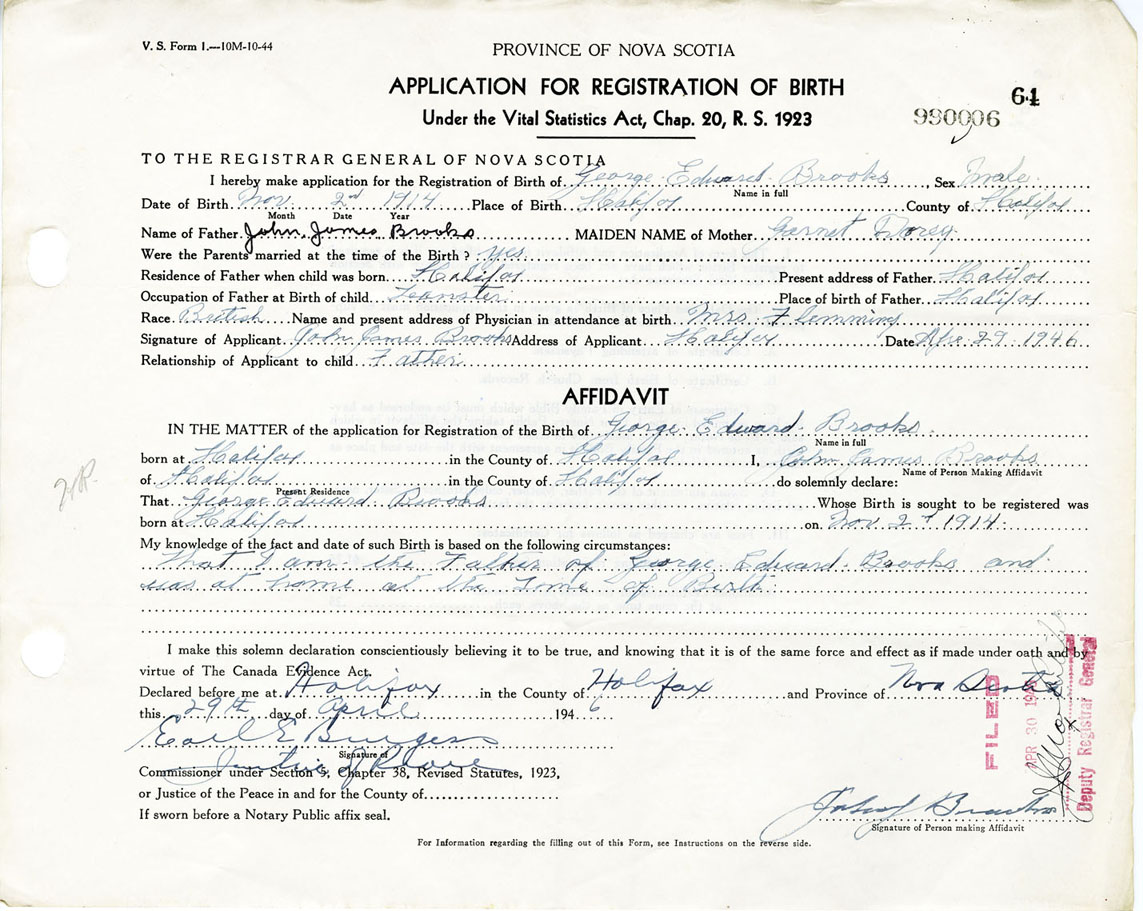 V. S. Form 1.—10M-10-44
PROVINCE OF NOVA SCOTIA
APPLICATION FOR REGISTRATION OF BIRTH
64
Under the Vital Statistics Act, Chap. 20, R. S. 1923
990006
TO THE REGISTRAR GENERAL OF NOVA SCOTIA
I hereby make application for the Registration of Birth of George Edward Brooks, Sex Male
Name in full
Date of Birth Nov. 2nd 1914 Place of Birth Halifax County of Halifax
Month Date Year
Name of Father John James Brooks MAIDEN NAME of Mother Garnet Dorey
Were the Parents married at the time of the Birth? yes
Residence of Father when child was born Halifax Present address of Father Halifax
Occupation of Father at Birth of child Teamster Place of birth of Father Halifax
Race British Name and present address of Physician in attendance at birth Mrs Flemming
Signature of Applicant John James Brooks Address of Applicant Halifax Date Apr. 29. 1946
Relationship of Applicant to child Father
AFFIDAVIT
IN THE MATTER of the application for Registration of the Birth of George Edward Brooks
Name in full
born at Halifax in the County of Halifax I, John James Brooks
Name of Person Making Affidavit
of Halifax in the County of Halifax do solemnly declare:
Present Residence
That George Edward Brooks Whose Birth is sought to be registered was
born at Halifax on Nov 2nd 1914
My knowledge of the fact and date of such Birth is based on the following circumstances:
that I am the Father of George Edward Brooks and
was at home at the Time of Birth
I make this solemn declaration conscientiously believing it to be true, and knowing that it is of the same force and effect as if made under oath and by
virtue of The Canada Evidence Act.
Declared before me at Halifax in the County of Halifax and Province of Nova Scotia
this 29th day of April 1946
Earl E Burgess
Signature of
Justice of Peace
Commissioner under Section 5, Chapter 38, Revised Statutes, 1923,
or Justice of the Peace in and for the County of
If sworn before a Notary Public affix seal.
Signature of Person making Affidavit
For Information regarding the filling out of this Form, see Instructions on the reverse side.
FILED
APR 30 194
Deputy Registrar General